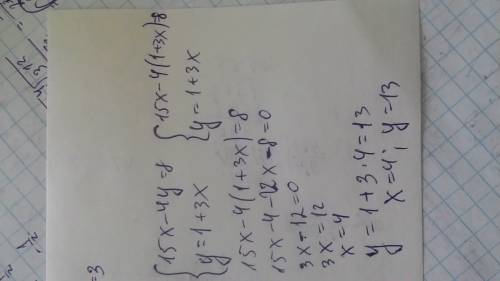 {15x-4y=8 {15x-4(1+3x)=8
{y=1+3x {y=1+3x
15x-4(1+3x)=8
15x-4-12x-8=0
3x-12=0
3x=12
x=4
y=1+3·4=13
x=4; y=13
=3